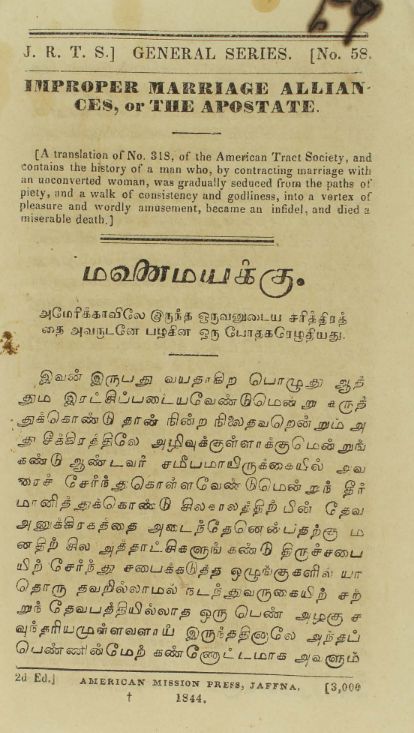 59
J. R. T. S.] GENERAL SERIES. [No. 58.
IMPROPER MARRIAGE ALLIAN-
CES, or THE APOSTATE.
[A translation of No. 318, of the American Tract Society, and
contains the history of a man who, by contracting marriage with
an unconverted woman, was gradually seduced from the paths of
piety, and a walk of consistency and godliness, into a vortex of
pleasure and wordly amusement, became an infidel, and died a
miserable death.]
மணமயக்கு.
அமேரிக்காவிலே இருந்த ஒருவனுடைய சரித்திரத்
தை அவருடனே பழகின ஒரு போதகரெழுதியது.
இவன் இருபது வயதாகிற பொழுது ஆத்
தும இரட்சிப்படையவேண்டுமென்று கருத்
துக்கொண்டு தான் நின்ற நிலைதவறென்றும் அ
து சீக்கிரத்திலே அழிவுக்குள்ளாக்குமென்றுங்
கண்டு ஆண்டவர் சமீபமாயிருக்கையில் அவ
ரைச் சேர்ந்துகொள்ளவேண்டுமென்றுந் தீர்
மானித்துக்கொண்டு சிலகாலத்திற் பின் தேவ
அனுக்கிரகத்தை அடைந்தேனென்பதற்கு ம
னதிற் சில அத்தாட்சிகளுங் கண்டு திருச்சபை
யிற் சேர்ந்து சபைக்கடுத்த ஒழுங்குகளில் யா
தொரு தவறில்லாமல் நடந்துவருகையிற் சற்
றுந் தேவபத்தியில்லாத ஒரு பெண் அழகு ச
வுந்தரியமுள்ளவளாய் இருந்ததினாலே அந்தப்
பெண்ணின்மேற் கண்ணோட்டமாக அவளும்
2d Ed.] AMERICAN MISSION PRESS, JAFFNA. [3,000
† 1844.